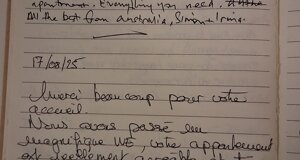 apartment. Everything you need.
All the best from Australia, Simon + Irina.
17/08/25
Merci beaucoup pour votre
accueil.
Nous avons passé un
magnifique WE, votre appartement
est réellement agréable